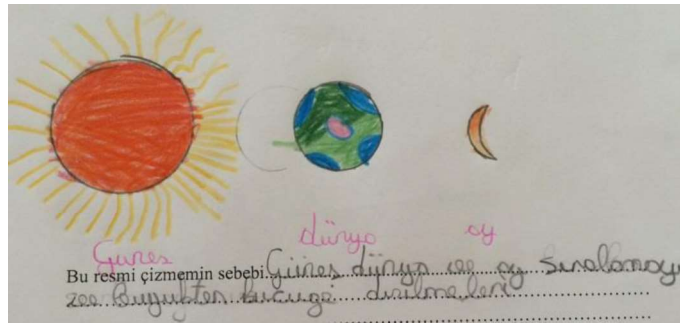 Güneş dünya ay
Bu resmi çizmemin sebebi Güneş dünya ve ay sıralamayı
ve Buyukten kucuğe dizilmeleri